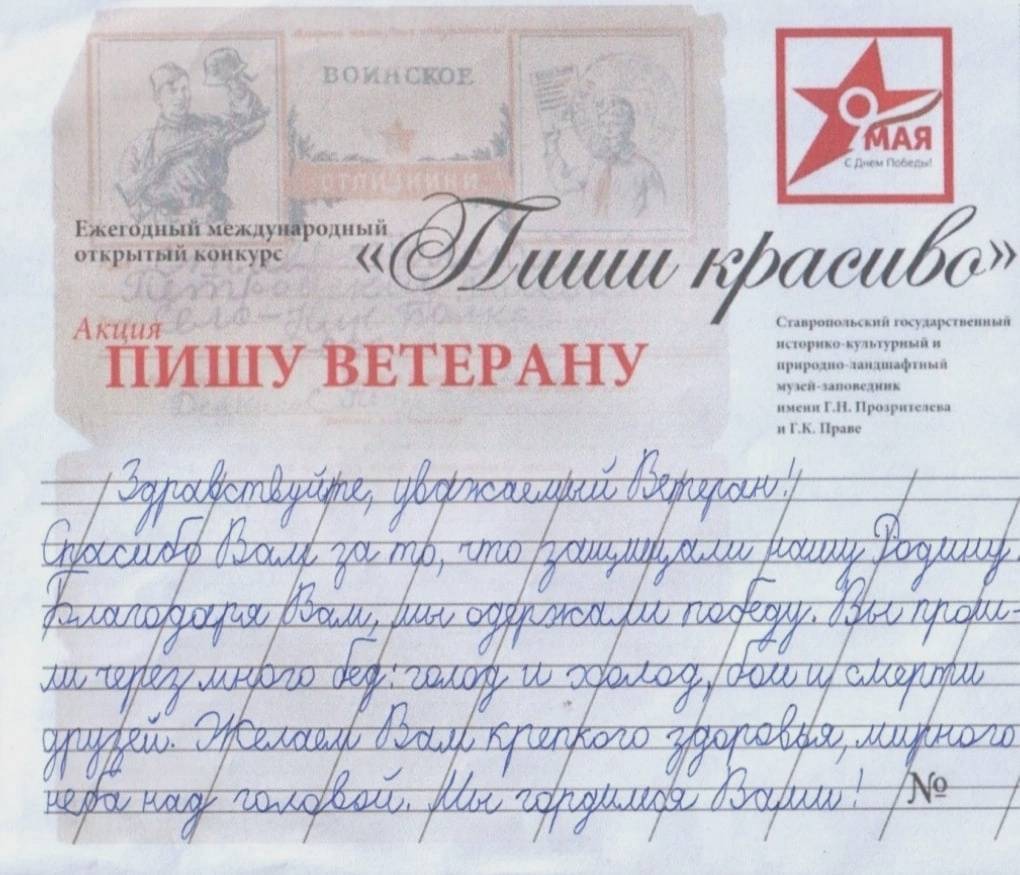 ВОИНСКОЕ
ОТЛИЧНИКИ
9
МАЯ
С Днем Победы!
Ежегодный международный
открытый конкурс
«Пиши красиво»
Акция
ПИШУ ВЕТЕРАНУ
Ставропольский государственный
историко-культурный и
природно-ландшафтный
музей-заповедник
имени Г.Н. Прозрителева
и Г.К. Праве
Здравствуйте, уважаемый Ветеран!
Спасибо Вам за то, что защищали нашу Родину.
Благодаря Вам, мы одержали победу. Вы прош-
ли через много бед: голод и холод, бои и смерти
друзей. Желаем Вам крепкого здоровья, мирного
неба над головой. Мы гордимся Вами!
№